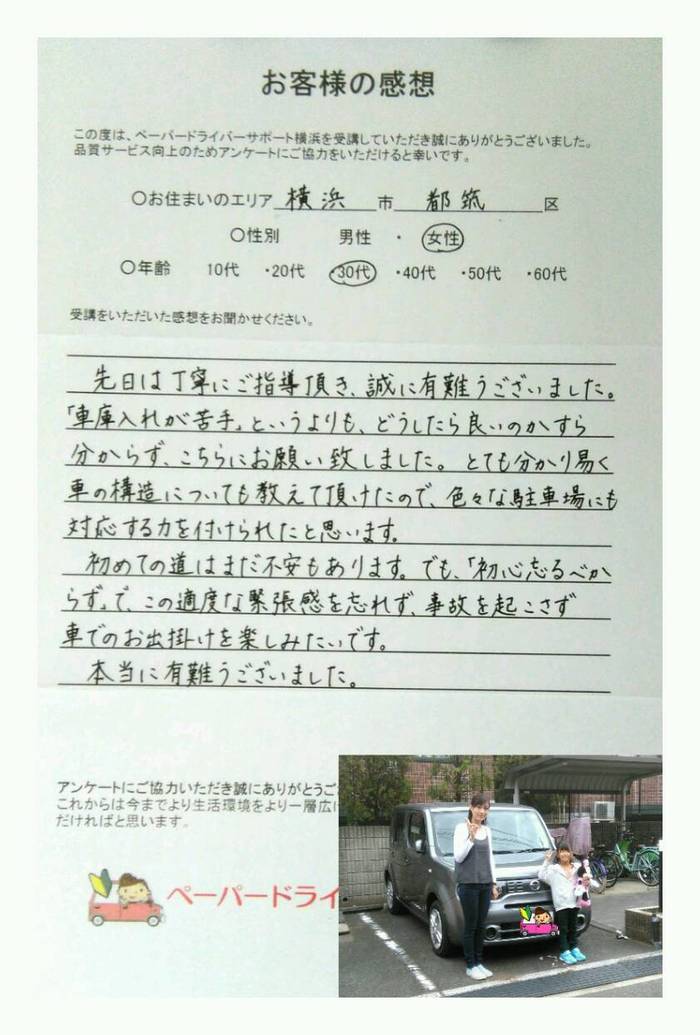 お客様の感想
この度は、ペーパードライバーサポート横浜を受講していただき誠にありがとうございました。
品質サービス向上のためアンケートにご協力をいただけると幸いです。
○お住まいのエリア 横浜 市 都筑 区
○性別 男性 ・ 女性
○年齢 10代 ・20代 ・30代 ・40代 ・50代 ・60代
受講をいただいた感想をお聞かせください。
先日は丁寧にご指導頂き、誠に有難うございました。
「車庫入れが苦手」というよりも、どうしたら良いのかすら
分からず、こちらにお願い致しました。とても分かり易く
車の構造についても教えて頂けたので、色々な駐車場にも
対応する力を付けられたと思います。
初めての道はまだ不安もあります。でも、「初心忘るべか
らず」で、この適度な緊張感を忘れず、事故を起こさず
車でのお出掛けを楽しみたいです。
本当に有難うございました。
アンケートにご協力いただき誠にありがとうご
これからは今までより生活環境をより一層広げ
だければと思います。
ペーパードライ